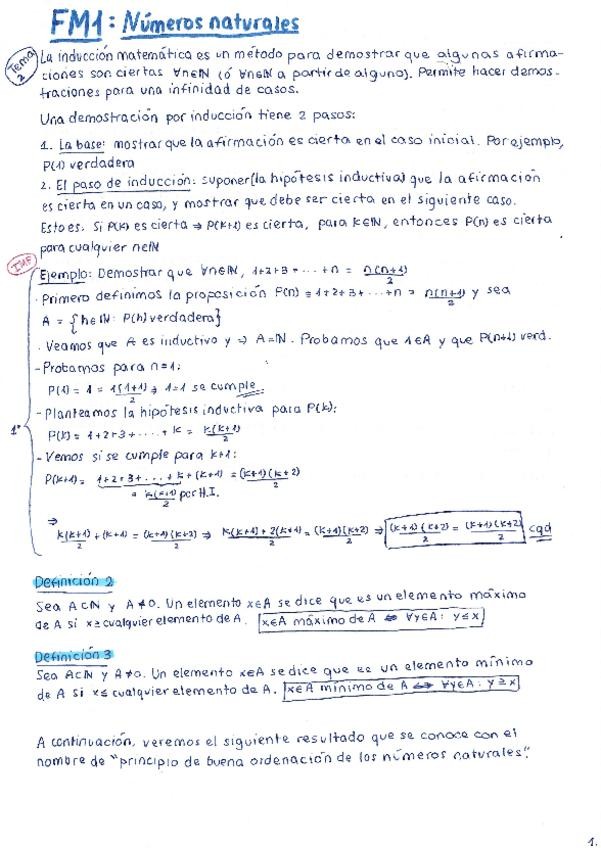 FM1: Números naturales
Tema 2
La inducción matemática es un método para demostrar que algunas afirma-
ciones son ciertas ∀n∈ℕ (ó ∀n∈ℕ a partir de alguno). Permite hacer demos-
traciones para una infinidad de casos.
Una demostración por inducción tiene 2 pasos:
1. La base: mostrar que la afirmación es cierta en el caso inicial. Por ejemplo,
P(1) verdadera
2. El paso de inducción: suponer (la hipótesis inductiva) que la afirmación
es cierta en un caso, y mostrar que debe ser cierta en el siguiente caso.
Esto es. Si P(k) es cierta ⇒ P(k+1) es cierta, para k∈ℕ, entonces P(n) es cierta
para cualquier n∈ℕ
IMP
Ejemplo: Demostrar que ∀n∈ℕ, 1+2+3+ ··· +n = n(n+1)/2
· Primero definimos la proposición P(n) ≡ 1+2+3+ ··· +n = n(n+1)/2 y sea
A = {n∈ℕ: P(n) verdadera}
· Veamos que A es inductivo y ⇒ A=ℕ. Probamos que 1∈A y que P(n+1) verd.
- Probamos para n=1:
P(1) = 1 = 1(1+1)/2 ⇒ 1=1 se cumple
- Planteamos la hipótesis inductiva para P(k):
1º
P(k) = 1+2+3+ ····· + k = k(k+1)/2
- Vemos si se cumple para k+1:
P(k+1) = 1+2+3+ ... + k + (k+1) = (k+1)(k+2)/2
k(k+1)/2 por H.I.
⇒
k(k+1)/2 + (k+1) = (k+1)(k+2)/2 ⇒ k(k+1)+2(k+1)/2 = (k+1)(k+2)/2 ⇒ (k+1)(k+2)/2 = (k+1)(k+2)/2 cqd
Definición 2
Sea A⊂ℕ y A≠0. Un elemento x∈A se dice que es un elemento máximo
de A si x≥ cualquier elemento de A. x∈A máximo de A ⇔ ∀y∈A: y≤x
Definición 3
Sea A⊂ℕ y A≠0. Un elemento x∈A se dice que es un elemento mínimo
de A si x≤ cualquier elemento de A. x∈A mínimo de A ⇔ ∀y∈A: y≥x
A continuación, veremos el siguiente resultado que se conoce con el
nombre de "principio de buena ordenación de los números naturales".
1.